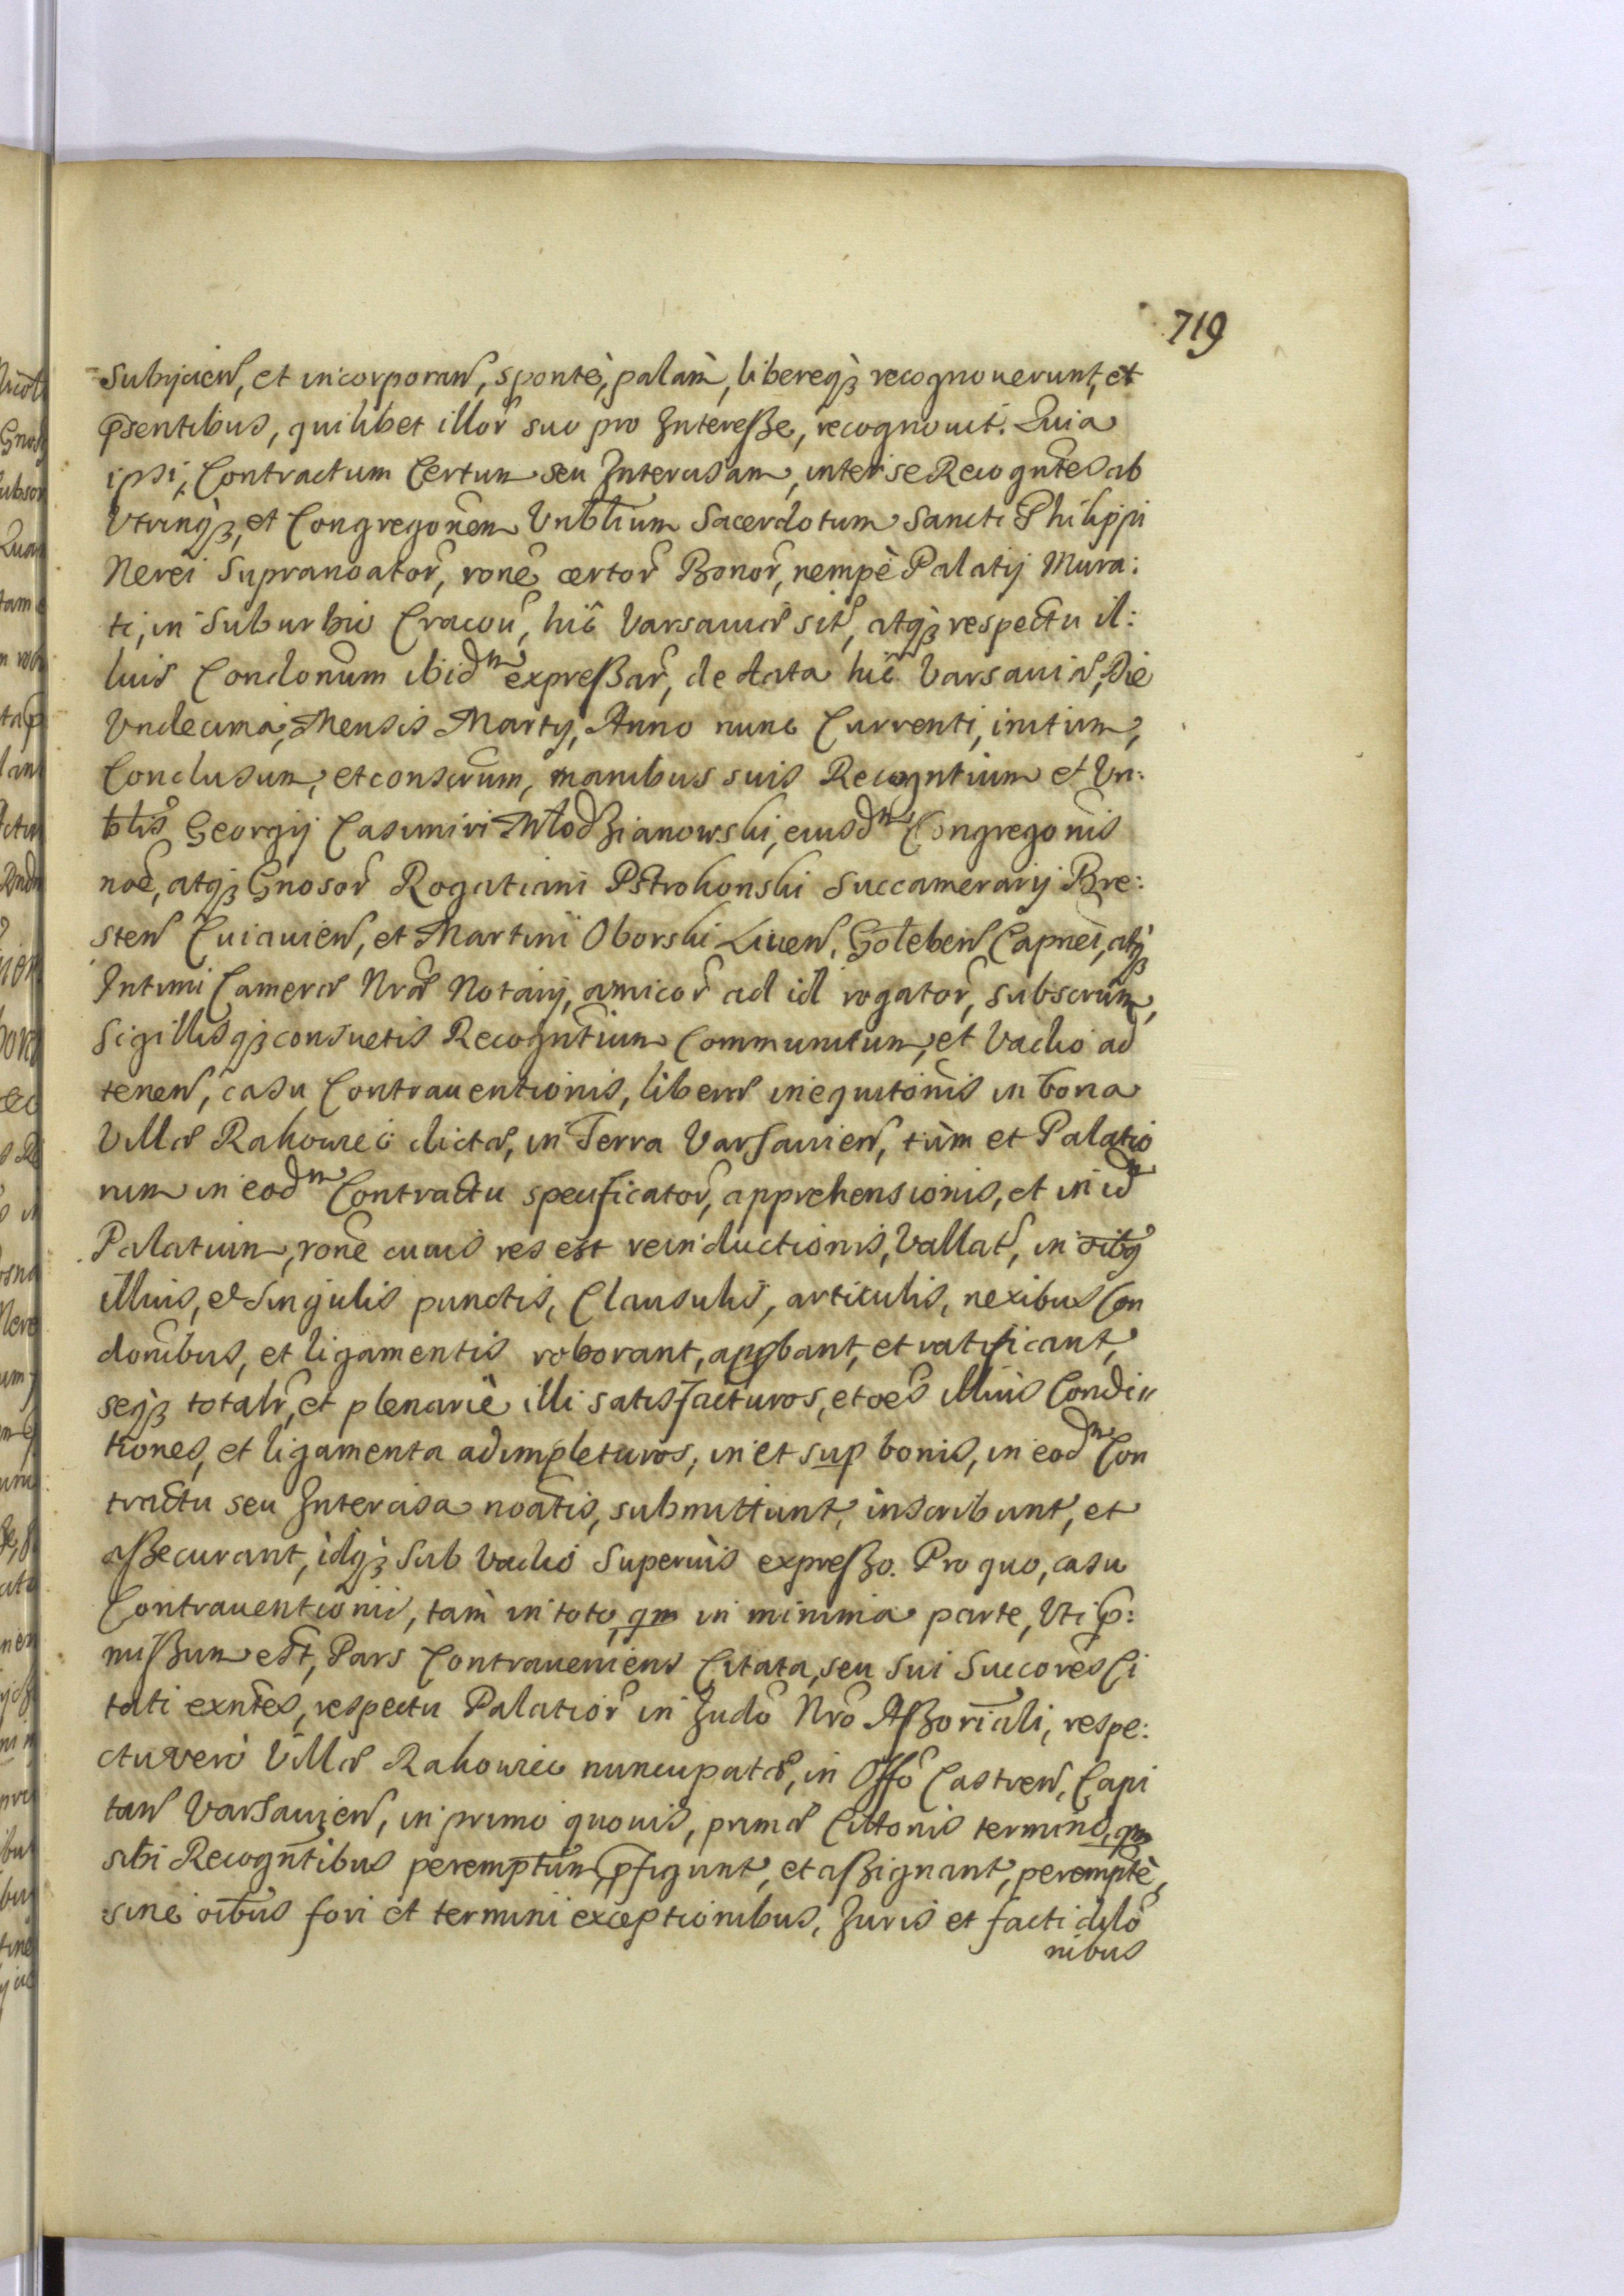 719
Subijcien, et incorporan, sponte, palàm, libereqꝫ recognouerunt, et
p̄sentibus, quilibet illor̄ suo pro Interesse, recognouit. Quia
ipsi, Contractum Certum seu Intercisam, inter se Recogn̄tes ab
Vtrinqꝫ, et Congregōnem Vn̄bl̄ium Sacerdotum Sancti Philippi
Nerei Supranōator̄, rōne certor̄ Bonor̄, nempè Palatij Mura:
ti, in Suburbio Cracou, hic Varsauiæ sit, atqꝫ respectu il:
luis Condōnum ibidm expressar̄, de data hic Varsauiæ, Die
Vndecima, Mensis Martij, Anno nunc Currenti, initum,
Conclusum, et conscr̄um, manibus suis Recogn̄tium et Vn:
bl̄is Georgij Casimiri Młodzianowski, eiusdm Congregōnis
nōe, atqꝫ Gn̄osor̄ Rogatiani Pstrokonski Succamerarij Bre:
sten Cuiauien, et Martini Oborski Liuen, Golebien Capnei, atqꝫ
Intimi Cameræ Nr̄æ Notarij, amicor̄ ad id rogator̄, subscr̄um,
Sigillisqꝫ consuetis Recogn̄tium Communitum, et Vadio ad
tenen, casu Contrauentionis, liberæ inequitōnis in bona
Villæ Rakowiec dictæ, in Terra Varsauien, tùm et Palatio
rum in eodm Contractu specificator̄, apprehensionis, et in idm
Palatium, rōne cuius res est reinductionis, Vallat, in oībꝫ
illius, et Singulis punctis, Clausulis, articulis, nexibus Con
dōnibus, et ligamentis roborant, app̱bant, et ratificant,
seqꝫ totalr̄, et plenariè illi satisfacturos, et oēs illius Condi〃
tiones, et ligamenta adimpleturos, in et sup bonis, in eodm Con
tractu seu Intercisa nōatis, submittunt, inscribunt, et
assecurant, idqꝫ Sub Vadio Superiùs expresso. Pro quo, casu
Contrauentionis, tam in toto, qm in minima parte, Vti p̄:
missum est, Pars Contraueniens Citata, seu Sui Succōres Ci
tati exn̄tes, respectu Palatior̄ in Judō Nrō Assoriali, respe:
ctu verò Villæ Rakowiec nuncupatæ, in Offō Castren, Capi
tan Varsauien, in primo quouis, primæ Cittōnis termino, qm
sibi Recogn̄tibus peremptūm p̄figunt, et assignant, peremptè,
sine oībus fori et termini exceptionibus, Juris et facti dilō
nibus